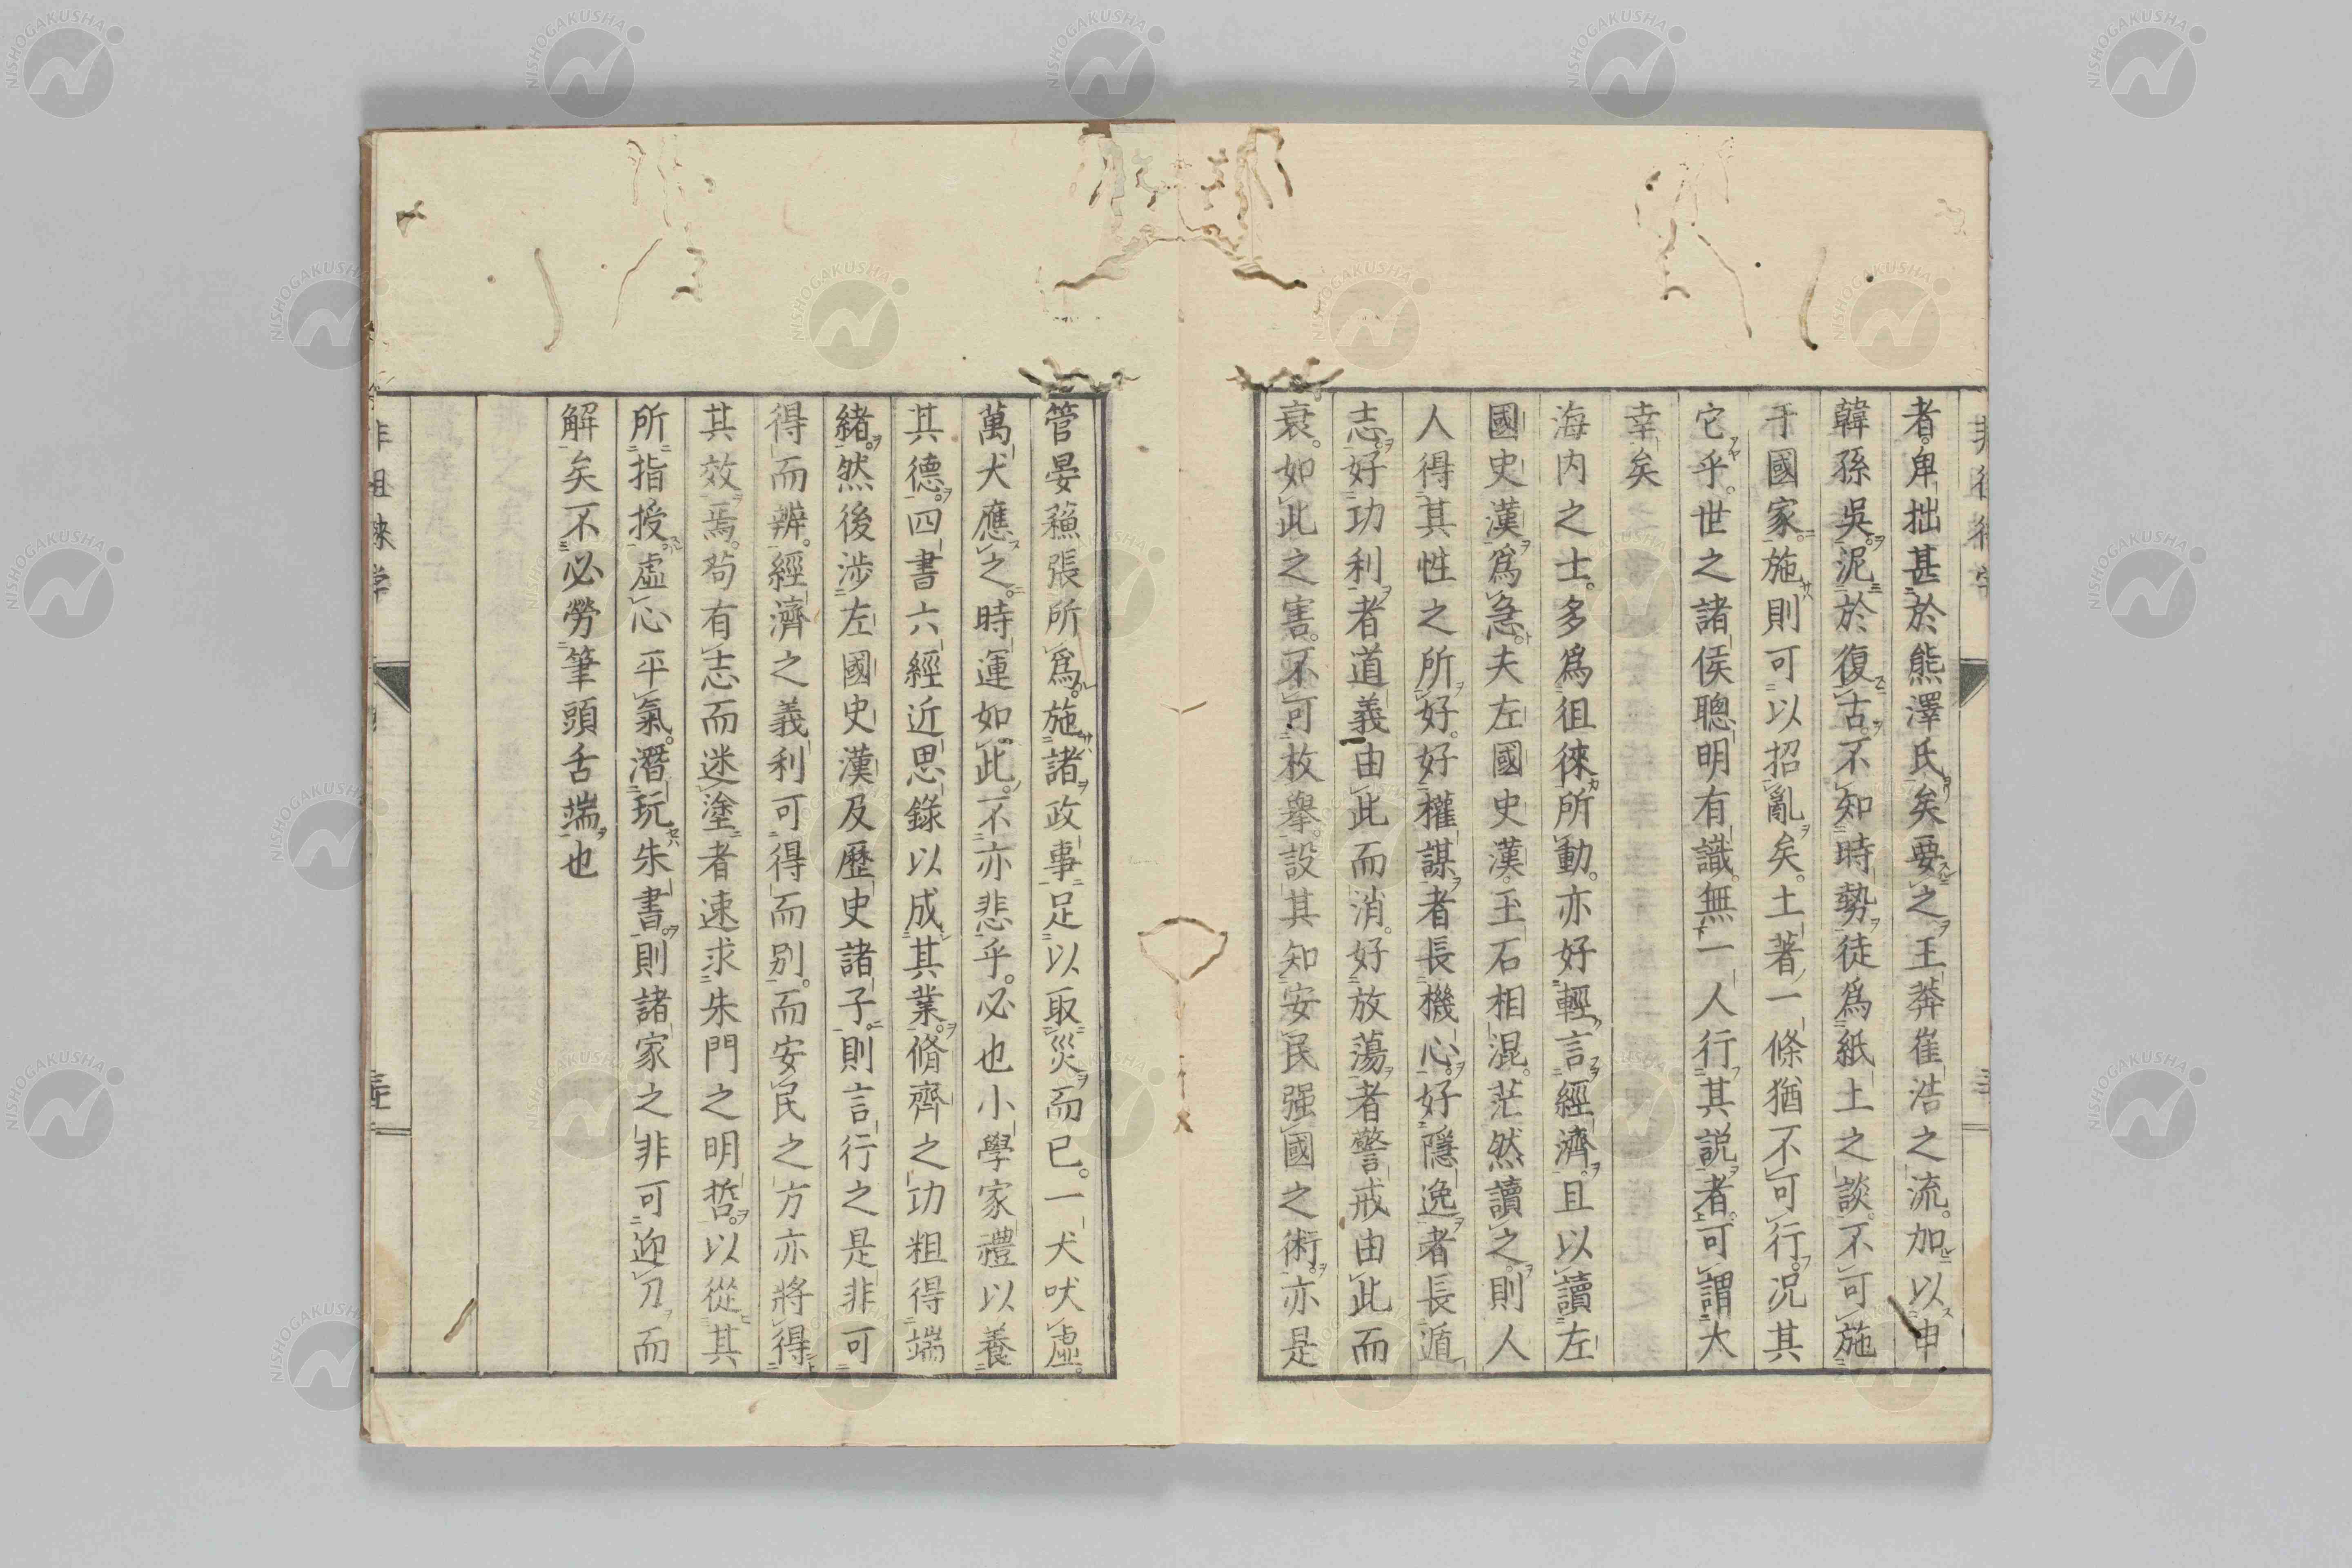 者。卑拙甚於熊澤氏矣要之王莽崔浩之流。加以申
韓孫吳。泥於復古。不知時勢徒爲紙上之談。不可施
于國家。施則可以招亂矣。土著一條猶不可行。况其
它乎。世之諸侯聰明有識。無一人行其説者。可謂大
幸矣
海內之士。多爲徂徠所動。亦好輕言經濟。且以讀左
國史漢爲急。夫左國史漢。玉石相混。茫然讀之。則人
人得其性之所好。好權謀者長機心。好隱逸者長遁
志。好功利者道義由此而消。好放蕩者警戒由此而
衰。如此之害。不可枚舉。設其知安民强國之術。亦是
管晏蘇張所爲。施諸政事足以取災而已。一犬吠虛。
萬犬應之。時運如此。不亦悲乎。必也小學家禮以養
其德。四書六經近思錄以成其業。脩齊之功粗得端
緒。然後涉左國史漢及歷史諸子。則言行之是非可
得而辨。經濟之義利可得而別。而安民之方亦將得
其效焉。苟有志而迷塗者速求朱門之明哲。以從其
所指授。虛心平氣。潛玩朱書。則諸家之非可迎刀而
解矣不必勞筆頭舌端也
NISHOGAKUSHA